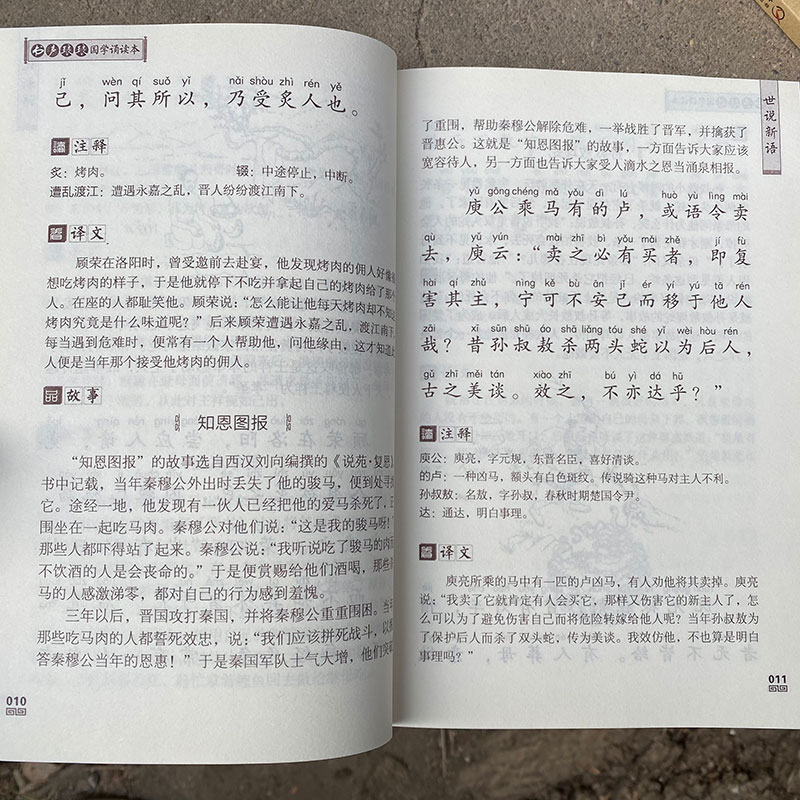 七声琅琅国学诵读本
jǐ wèn qí suǒ yǐ nǎi shòu zhì rén yě
己，问其所以，乃受炙人也。
注释
炙：烤肉。 辍：中途停止，中断。
遭乱渡江：遭遇永嘉之乱，晋人纷纷渡江南下。
译文
顾荣在洛阳时，曾受邀前去赴宴，他发现烤肉的佣人好像很
想吃烤肉的样子，于是他就停下不吃并拿起自己的烤肉给了那个
人。在座的人都耻笑他。顾荣说：“怎么能让他每天烤肉却不知道
烤肉究竟是什么味道呢？”后来顾荣遭遇永嘉之乱，渡江南下，
每当遇到危难时，便常有一个人帮助他，问他缘由，这才知道此
人便是当年那个接受他烤肉的佣人。
品 故事
知恩图报
“知恩图报”的故事选自西汉刘向编撰的《说苑·复恩》。
书中记载，当年秦穆公外出时丢失了他的骏马，便到处寻找
它。途经一地，他发现有一伙人已经把他的爱马杀死了，正
围坐在一起吃马肉。秦穆公对他们说：“这是我的骏马呀！”
那些人都吓得站了起来。秦穆公说：“我听说吃了骏马的肉而
不饮酒的人是会丧命的。”于是便赏赐给他们酒喝，那些杀
马的人感激涕零，都对自己的行为感到羞愧。
三年以后，晋国攻打秦国，并将秦穆公重重围困。当年
那些吃马肉的人都誓死效忠，说：“我们应该拼死战斗，以报
答秦穆公当年的恩惠！”于是秦国军队士气大增，他们突破
010
世说新语
了重围，帮助秦穆公解除危难，一举战胜了晋军，并擒获了
晋惠公。这就是“知恩图报”的故事，一方面告诉大家应该
宽容待人，另一方面也告诉大家受人滴水之恩当涌泉相报。
yǔ gōng chéng mǎ yǒu dì lú huò yù lìng mài
庾公乘马有的卢，或语令卖
qù yǔ yún mài zhī bì yǒu mǎi zhě jí fù
去，庾云：“卖之必有买者，即复
hài qí zhǔ nìng kě bù ān jǐ ér yí yú tā rén
害其主，宁可不安己而移于他人
zāi xī sūn shū áo shā liǎng tóu shé yǐ wèi hòu rén
哉？昔孙叔敖杀两头蛇以为后人，
gǔ zhī měi tán xiào zhī bú yì dá hū
古之美谈。效之，不亦达乎？”
注释
庾公：庾亮，字元规，东晋名臣，喜好清谈。
的卢：一种凶马，额头有白色斑纹。传说骑这种马对主人不利。
孙叔敖：名敖，字孙叔，春秋时期楚国令尹。
达：通达，明白事理。
译文
庾亮所乘的马中有一匹的卢凶马，有人劝他将其卖掉。庾亮
说：“我卖了它就肯定有人会买它，那样又伤害它的新主人了，怎
么可以为了避免伤害自己而将危险转嫁给他人呢？当年孙叔敖为
了保护后人而杀了双头蛇，传为美谈。我效仿他，不也算是明白
事理吗？”
011